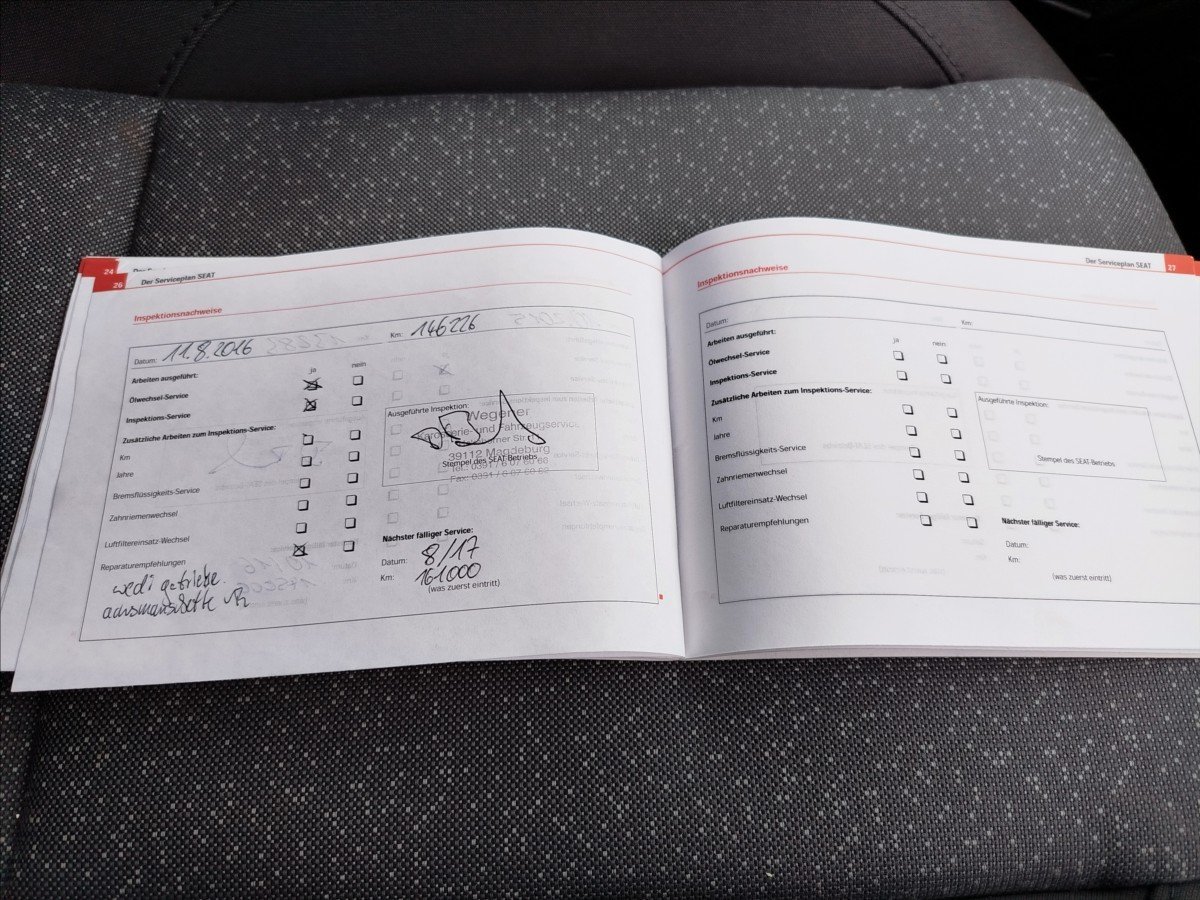 24
26
Der Serviceplan SEAT
Inspektionsnachweise
Datum: 11.8.2016
Km: 146226
Arbeiten ausgeführt:
ja
nein
Ölwechsel-Service
Inspektions-Service
Zusätzliche Arbeiten zum Inspektions-Service:
Km
Jahre
Bremsflüssigkeits-Service
Zahnriemenwechsel
Luftfiltereinsatz-Wechsel
Reparaturempfehlungen
wedi getriebe.
achsmanschette
Ausgeführte Inspektion:
Wegener
Karosserie- und Fahrzeugservice
39112 Magdeburg
Stempel des SEAT-Betriebs
Tel.: 0391 / 6 07 60 68
Fax: 0391 / 6 07 60 69
Nächster fälliger Service:
Datum: 8/17
Km: 161000
(was zuerst eintritt)
Der Serviceplan SEAT
27
Inspektionsnachweise
Datum:
Km:
Arbeiten ausgeführt:
ja
nein
Ölwechsel-Service
Inspektions-Service
Zusätzliche Arbeiten zum Inspektions-Service:
Km
Jahre
Bremsflüssigkeits-Service
Zahnriemenwechsel
Luftfiltereinsatz-Wechsel
Reparaturempfehlungen
Ausgeführte Inspektion:
Stempel des SEAT-Betriebs
Nächster fälliger Service:
Datum:
Km:
(was zuerst eintritt)